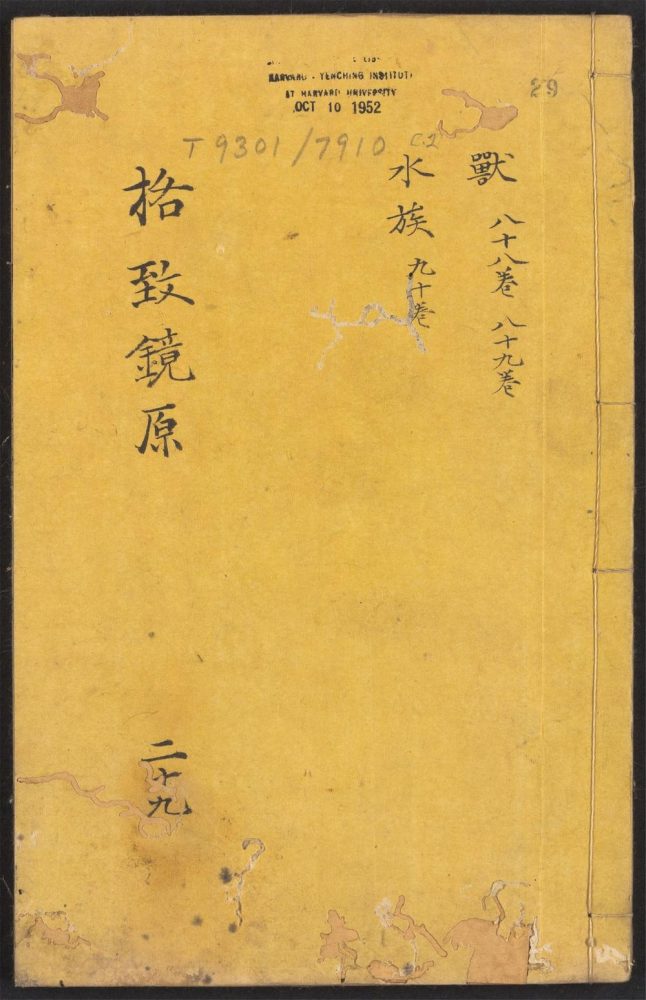 HARVARD-YENCHING INSTITUTE
AT HARVARD UNIVERSITY
OCT 10 1952
29
T 9301/7910 C.2
獸 八十八卷 八十九卷
水族 九十卷
格致鏡原
二十九